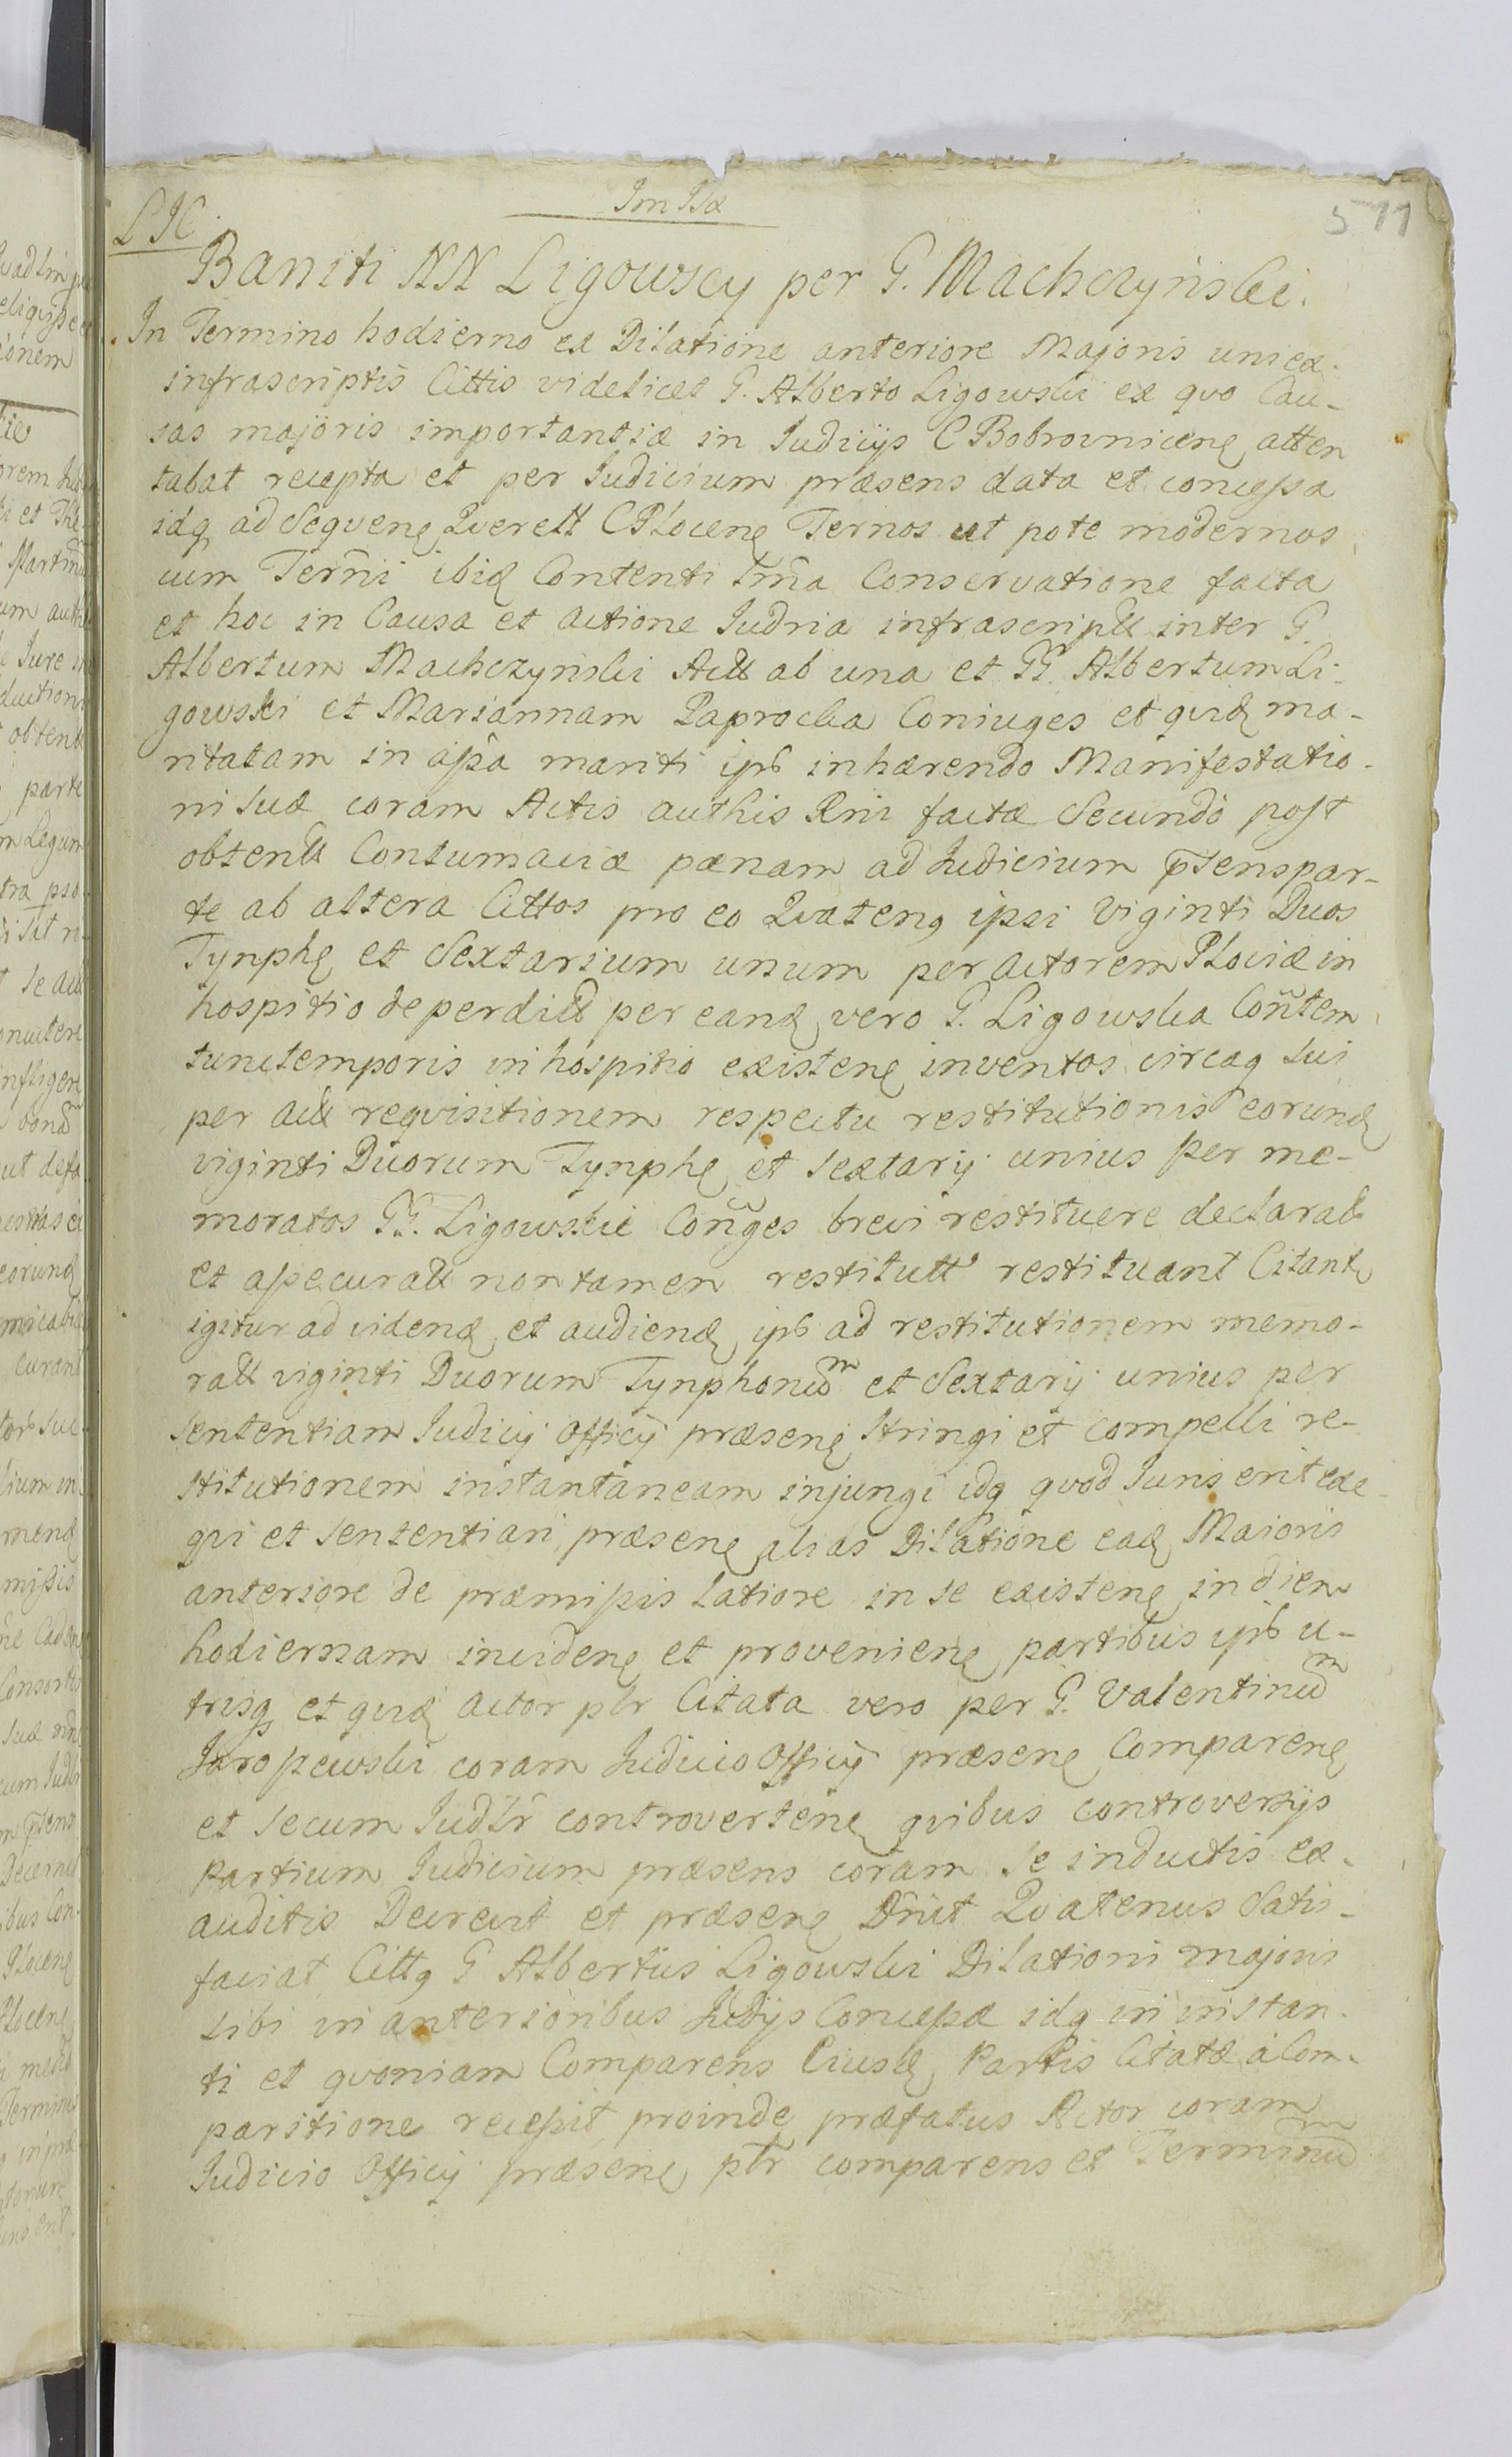 Im Isæ
5 11
L IC.
Baniti NN Ligowscy per G. Machczynski.
In Termino hodierno ex Dilatione anteriore Majoris unica
infrascriptis Cittis videlicet G. Alberto Ligowski ex quo Cau-
sas majoris importantiæ in Judicijs C Bobrovnicen atten
tabat recepta et per Judicium præsens data et concessa
idq ad Sequen Querell C Plocen Ternos ut pote modernos
cum Termi ibid Contenti Tma Conservatione facta
et hoc in Causa et actione Judria infrascriptt inter G.
Albertum Machczynski Actt ab una et GG. Albertum Li-
gowski et Mariannam Paprocka Coniuges et quid ma-
ritatam in assa mariti ipsb inhærendo Manifestatio-
ni suæ coram Actis authis Rni factæ Secundo post
obtentt Contumaciæ pænam ad Judicium ptens par-
te ab altera Cittos pro eo Quateng ipsi Viginti Duos
Tynph et Sextarium unum per actorem Plociæ in
hospitio deperditt per eand vero G. Ligowska Contem
tunctemporis in hospitio existen inventos circaq sui
per actt requisitionem respectu restitutionis eorund
viginti Duorum Tynph et sextarij unius per me-
moratos GG. Ligowskie Conges brevi restituere declaratt
et assecuratt non tamen restitutt restituant Citant
igitur ad vidend et audiend ipsb ad restitutionem memo-
ratt viginti Duorum Tynphonum et Sextarij unius per
Sententiam Judicij Officij præsen Stringi et compelli re-
stitutionem instantaneam injungi idq quod Juris erit exe-
qui et sententiari præsen alias Dilatione ead Maioris
anteriore de præmissis latiore in se existen in diem
hodiernam inciden et provenien partibus ipsb u-
trisq et quid actor ptr Citata vero per G. Valentinum
coram Judicio Officij præsen Comparen
et secum Judlr controverten quibus controversijs
Partium Judicium præsens coram se inductis ex-
auditis Decrevit et præsen Drnit Quatenus Satis-
faciat Cittq G Albertus Ligowski Dilationi majoris
sibi in anterioribus Judijs Concessæ idq in instan-
ti et quoniam Comparens Eiusd Partis Citatæ à Com-
paritione recessit proinde præfatus Actor coram
Judicio Officij præsen ptr comparens et Terminum